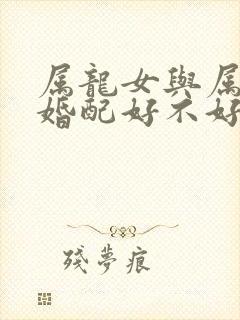 属龍女與属
婚配好不好
殘夢痕